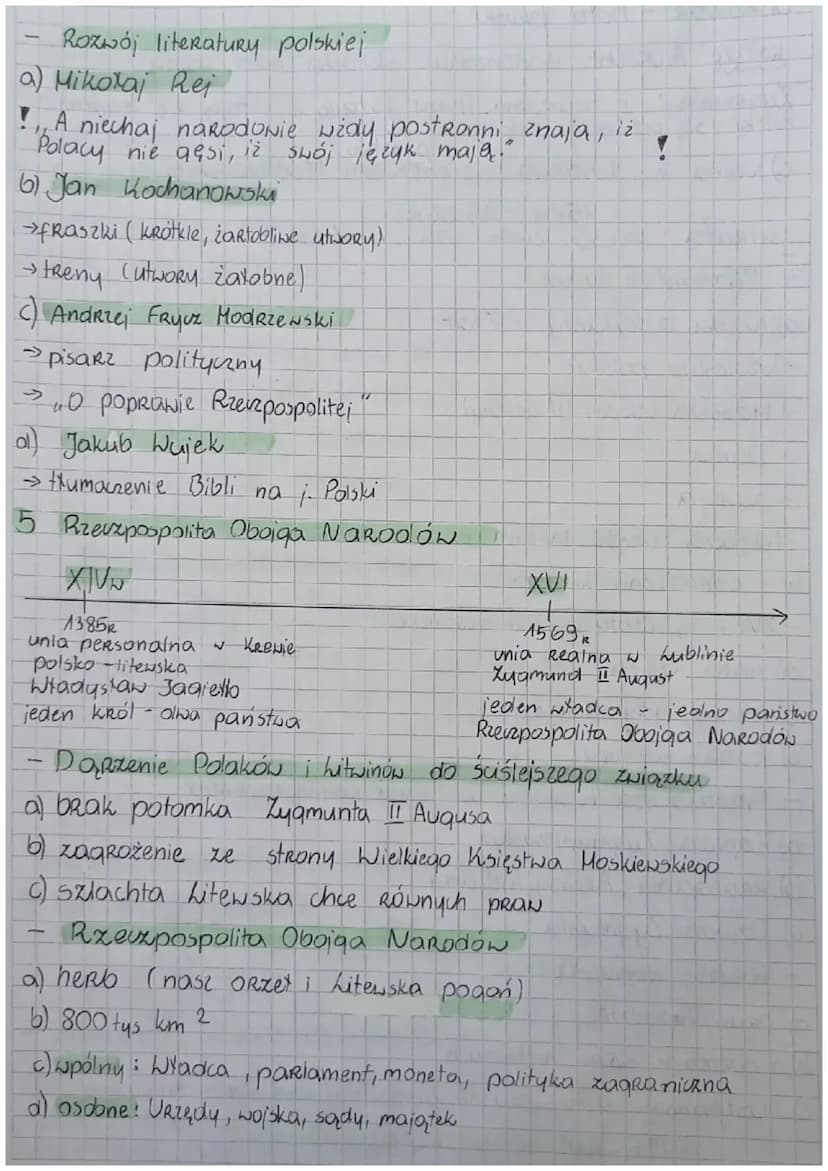 - Rozwój literatury polskiej
a) Mikołaj Rej
! „A niechaj narodowie wżdy postronni znają, iż
Polacy nie gęsi, iż swój język mają." !
b) Jan Kochanowski
→ fraszki (krótkie, żartobliwe utwory)
→ treny (utwory żałobne)
c) Andrzej Frycz Modrzewski
→ pisarz polityczny
→ „O poprawie Rzeczpospolitej"
d) Jakub Wujek
→ tłumaczenie Bibli na j. Polski
5 Rzeczpospolita Obojga Narodów
XIVw XVI
1385r 1569r
unia personalna w Krewie unia Realna w Lublinie
polsko-litewska Zygmund II August
Władysław Jagiełło jeden władca - jedno państwo
jeden król - dwa państwa Rzeczpospolita Obojga Narodów
- Dąrzenie Polaków i Litwinów do ściślejszego związku
a) brak potomka Zygmunta II Augusa
b) zagrożenie ze strony Wielkiego Księstwa Moskiewskiego
c) szlachta Litewska chce równych praw
- Rzeczpospolita Obojga Narodów
a) herb (nasz orzeł i Litewska pogoń)
b) 800 tys km²
c) wpólny: Władca, parlament, moneta, polityka zagraniczna
d) osobne: Urzędy, wojska, sądy, majątek